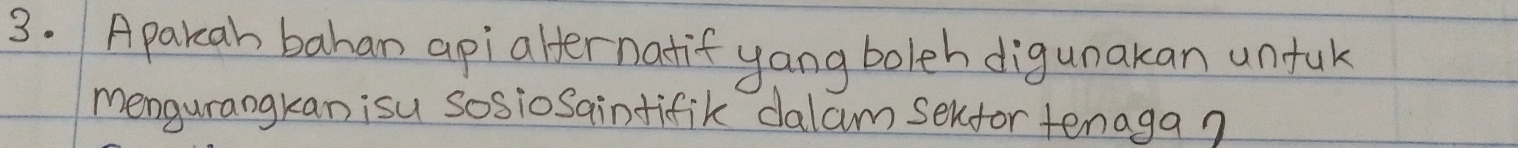 3. Apakah bahan api alternatif yang boleh digunakan untuk
mengurangkan isu sosiosaintifik dalam sektor tenaga?